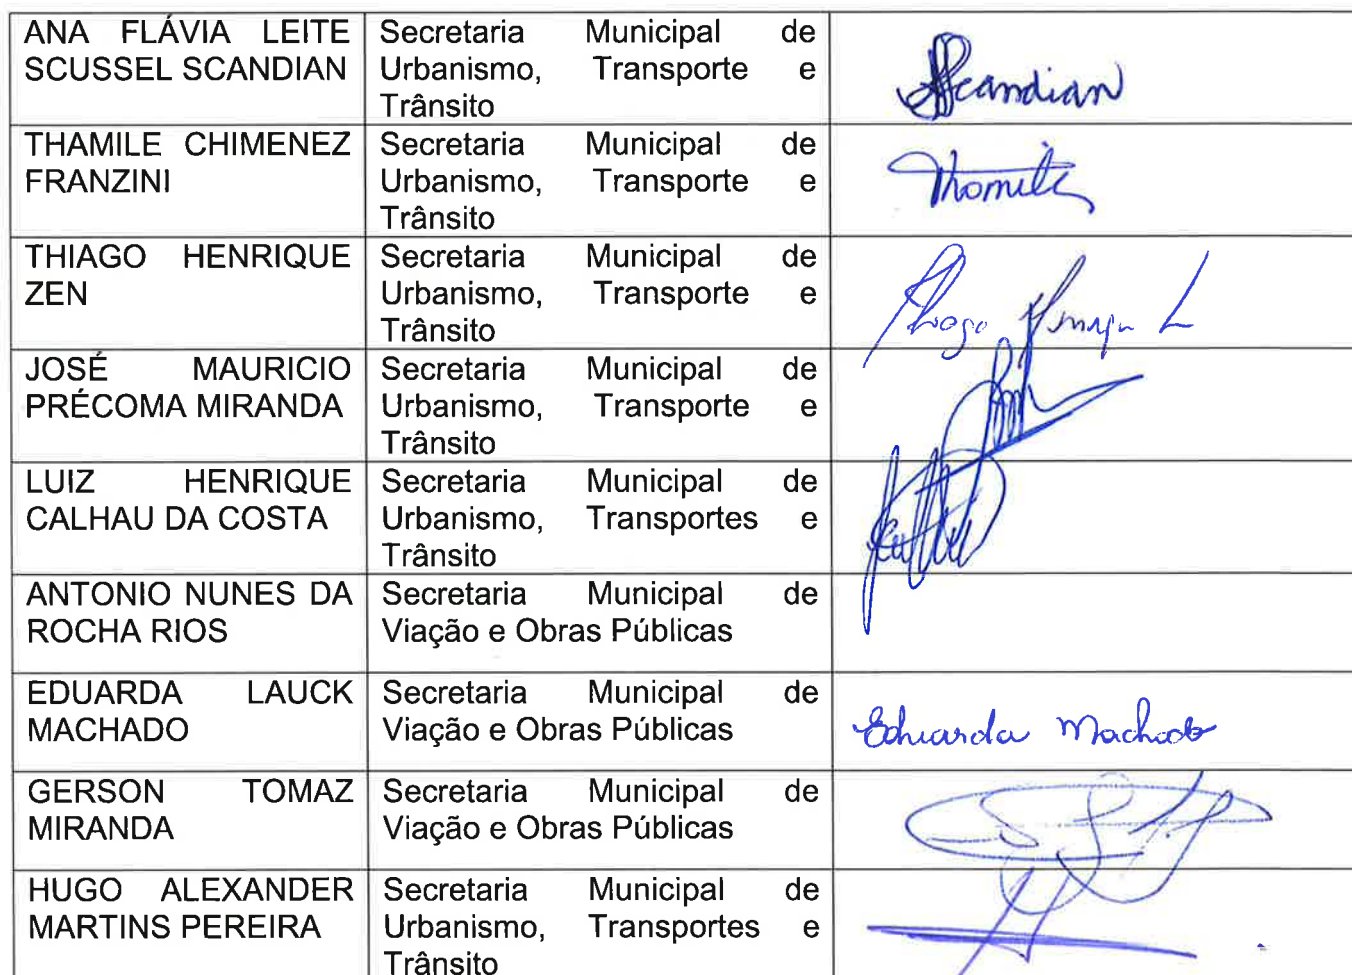 ANA FLÁVIA LEITE SCUSSEL SCANDIAN
Secretaria Municipal de
Urbanismo, Transporte e
Trânsito
Scandian
THAMILE CHIMENEZ FRANZINI
Secretaria Municipal de
Urbanismo, Transporte e
Trânsito
Thamile
THIAGO HENRIQUE ZEN
Secretaria Municipal de
Urbanismo, Transporte e
Trânsito
Thiago
JOSÉ MAURICIO PRÉCOMA MIRANDA
Secretaria Municipal de
Urbanismo, Transporte e
Trânsito
LUIZ HENRIQUE CALHAU DA COSTA
Secretaria Municipal de
Urbanismo, Transportes e
Trânsito
ANTONIO NUNES DA ROCHA RIOS
Secretaria Municipal de
Viação e Obras Públicas
EDUARDA LAUCK MACHADO
Secretaria Municipal de
Viação e Obras Públicas
Eduarda Machado
GERSON TOMAZ MIRANDA
Secretaria Municipal de
Viação e Obras Públicas
HUGO ALEXANDER MARTINS PEREIRA
Secretaria Municipal de
Urbanismo, Transportes e
Trânsito